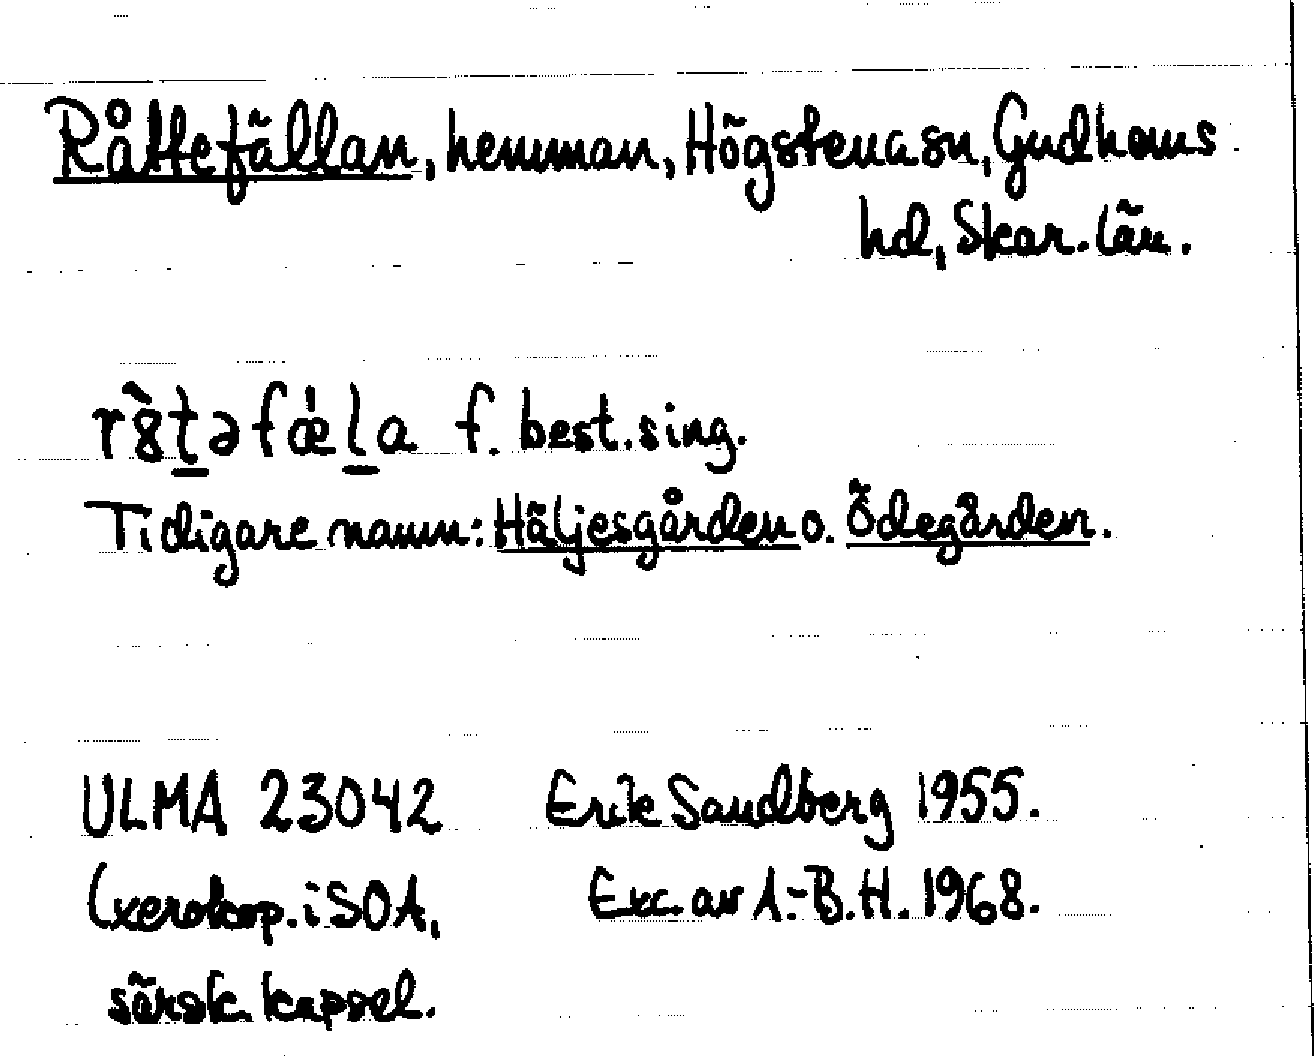 Råttefällan, hemman, Högstena sn, Gudhems
hd, Skar. län.
f. best. sing.
Tidigare namn: Häljesgården o. Ödegården.
ULMA 23042 Erik Sandberg 1955.
(xerokop. i SOA, Exc. av A.-B. H. 1968.
särsk. kapsel.